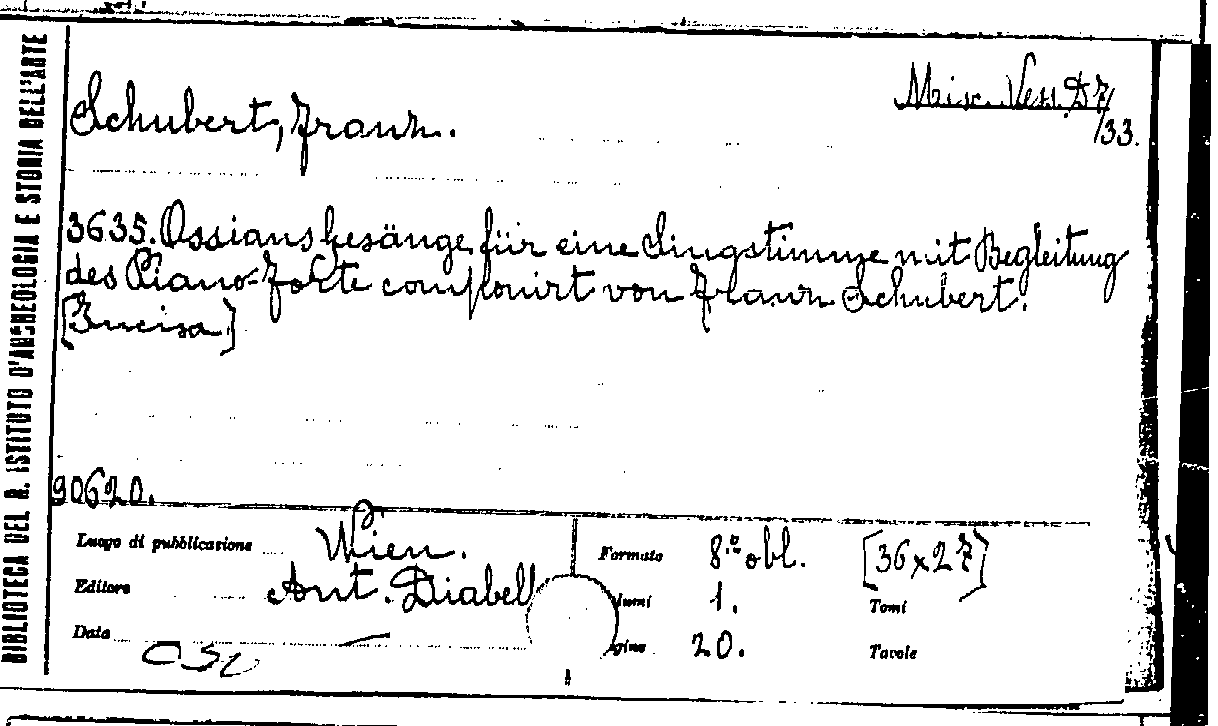 BIBLIOTECA DEL R. ISTITUTO D'ARCHEOLOGIA E STORIA DELL'ARTE
Misc. Vess. D7/33.
Schubert, Franz.
3635. Ossians Gesänge für eine Singstimme mit Begleitung
des Piano-Forte componirt von Franz Schubert.
[Incisa]
90620.
Luogo di pubblicazione Wien. Formato 8.º obl. [36x27]
Editore Ant. Diabell 1. Tomi
Data — 20. Tavole